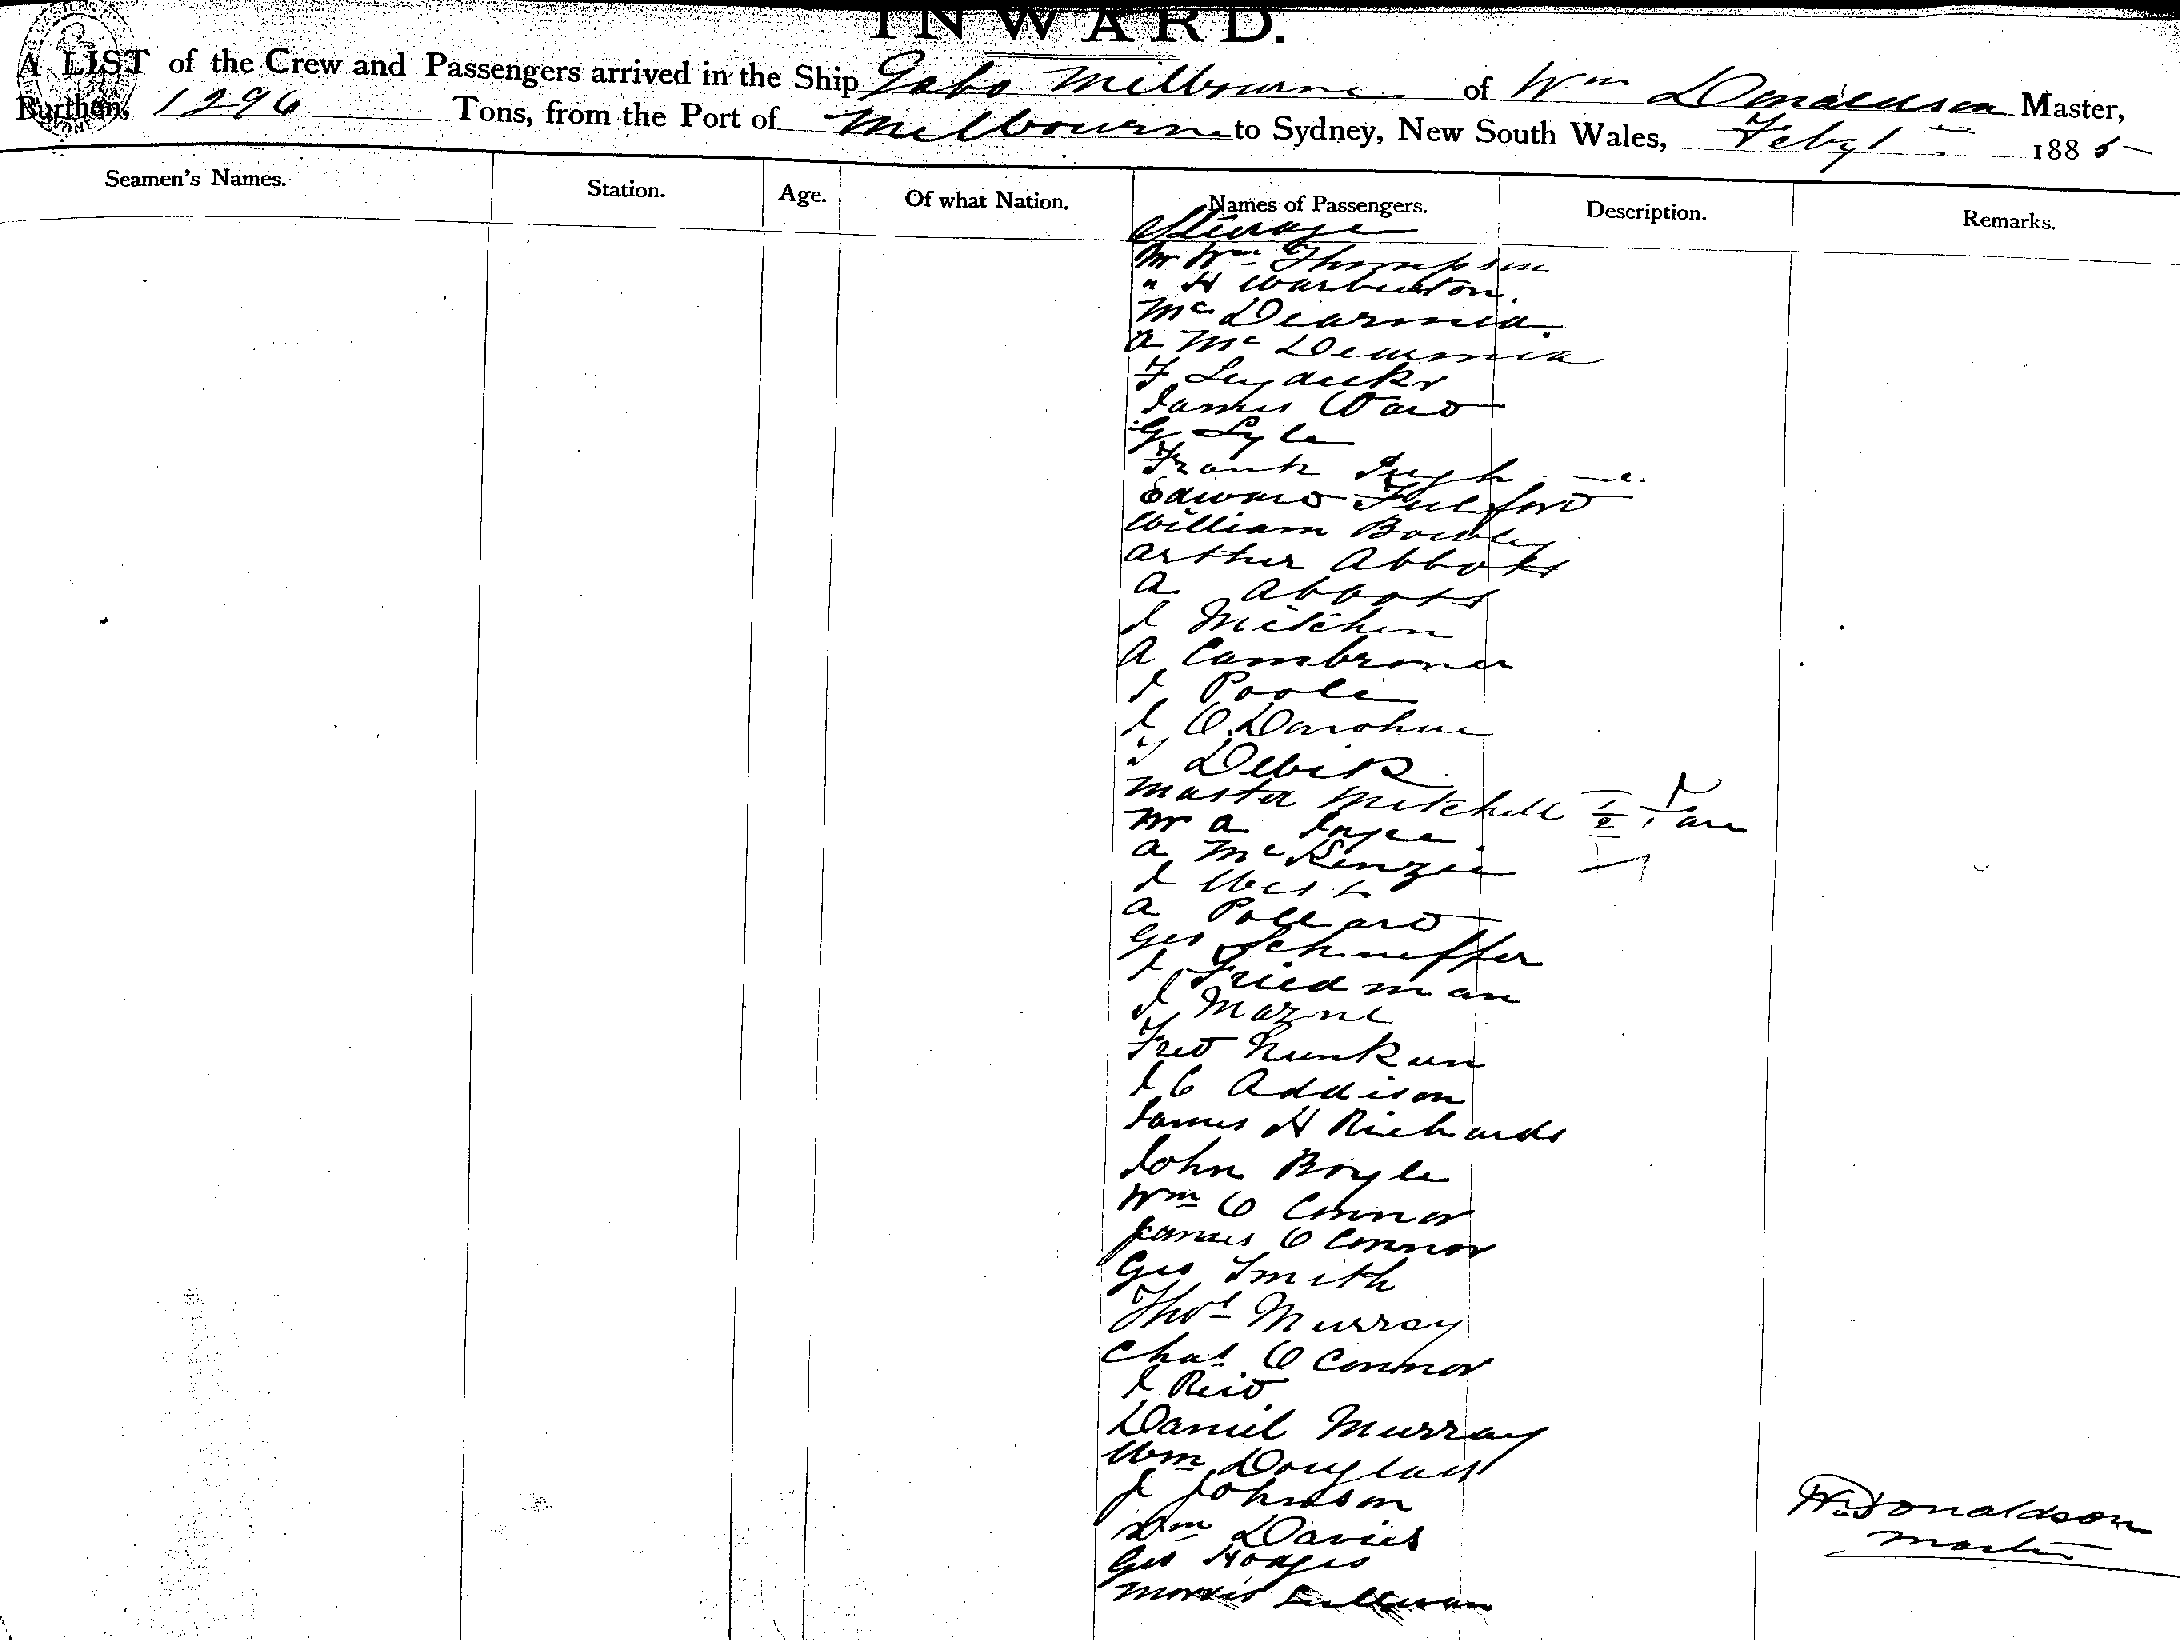 INWARD.
A LIST of the Crew and Passengers arrived in the Ship Gabo Melbourne of Wm Donaldson Master,
Burthen, 1296 Tons, from the Port of Melbourne to Sydney, New South Wales, Feby 1 1885
Seamen's Names. Station. Age. Of what Nation. Names of Passengers. Description. Remarks.
Steerage
Mr Wm Thompson
" H Warburton.
Mc Diarmid
A Mc Diarmid
F
James Ward
G Lyle
Frank Pugh
Edward Fulford
William Bowley
Arthur Abbott
A Abbott
J Mitchen
A Cambroner
J Poole
J O'Donohue
J Debick
Master Mitchell 1/2
Mr A Joyce
A McKenzie
J West
A Pollard
Geo Schaeffer
J Friedman
J Marne
Fred Nunkun
J C Addison
James H Richards
John Boyle
Wm O Connor
James O Connor
Geo Smith
Thos Murray
Chas O Connor
J Reid
Daniel Murray
Wm Douglass
J Johnson
Wm Davies
Geo Hodges
Morris Sullivan
W Donaldson
Master